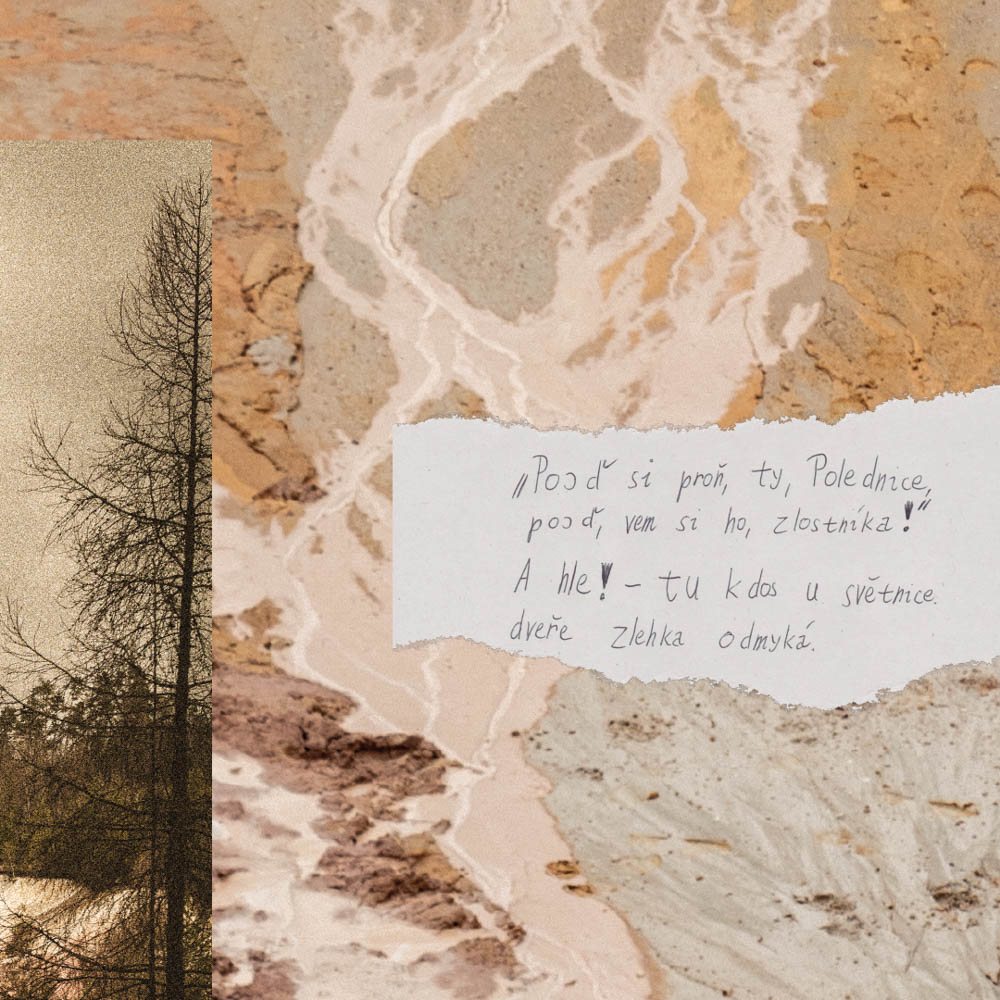 „Pojď si proň, ty, Polednice,
pojď, vem si ho, zlostníka!“
A hle! – tu kdos u světnice
dveře zlehka odmyká.